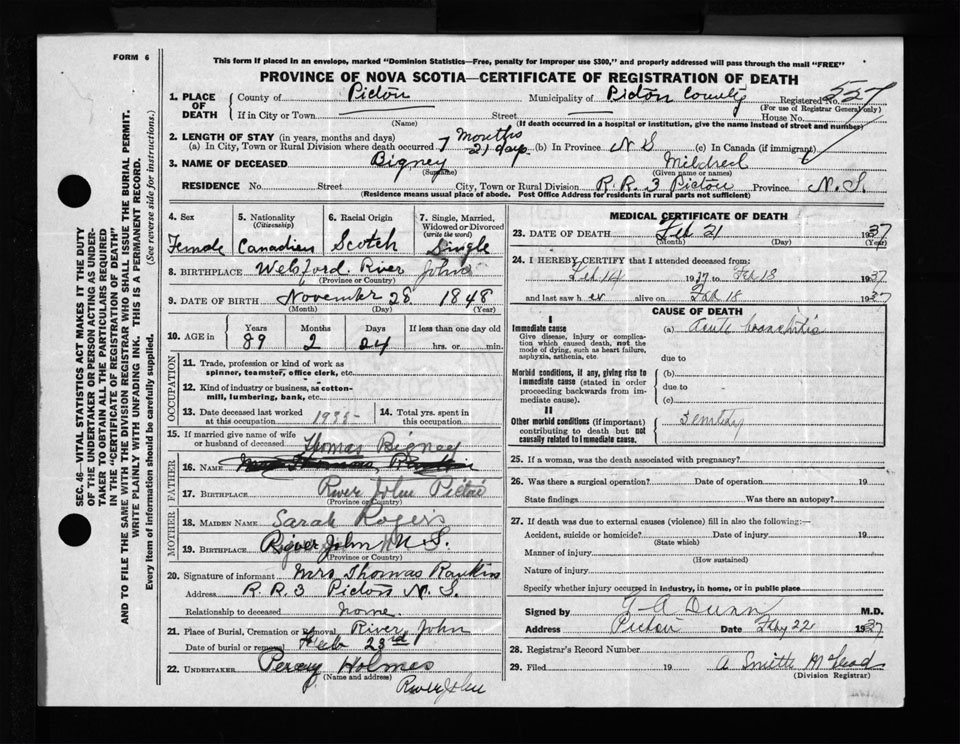 FORM 6
This form if placed in an envelope, marked "Dominion Statistics—Free, penalty for improper use $300," and properly addressed will pass through the mail "FREE"
PROVINCE OF NOVA SCOTIA—CERTIFICATE OF REGISTRATION OF DEATH
1. PLACE OF DEATH County of Pictou Municipality of Pictou County Registered No. 527
(For use of Registrar General only)
If in City or Town Street House No.
(Name) (If death occurred in a hospital or institution, give the name instead of street and number)
2. LENGTH OF STAY (in years, months and days)
(a) In City, Town or Rural Division where death occurred 7 months 21 days (b) In Province N S (c) In Canada (if immigrant)
3. NAME OF DECEASED Bigney Mildred
(Surname) (Given name or names)
RESIDENCE No. Street City, Town or Rural Division R. R. 3 Pictou Province N. S.
(Residence means usual place of abode. Post Office Address for residents in rural parts not sufficient)
4. Sex 5. Nationality (Citizenship) 6. Racial Origin 7. Single, Married, Widowed or Divorced (write the word)
Female Canadian Scotch Single
8. BIRTHPLACE Welsford River John
(Province or Country)
9. DATE OF BIRTH November 28 1848
(Month) (Day) (Year)
10. AGE in Years Months Days If less than one day old
89 2 24 hrs. or min.
OCCUPATION
11. Trade, profession or kind of work as spinner, teamster, office clerk, etc.
12. Kind of industry or business, as cotton-mill, lumbering, bank, etc.
13. Date deceased last worked at this occupation 14. Total yrs. spent in this occupation
15. If married give name of wife or husband of deceased Thomas Bigney
FATHER
16. NAME
17. Birthplace River John Pictou
(Province or Country)
MOTHER
18. MAIDEN NAME Sarah Rogers
19. BIRTHPLACE River John N. S.
(Province or Country)
20. Signature of informant Mrs Thomas Rankin
Address R. R. 3 Pictou N. S.
Relationship to deceased none.
21. Place of Burial, Cremation or Removal River John
Date of burial or removal Feb 23rd
22. UNDERTAKER Percy Holmes
(Name and address) River John
MEDICAL CERTIFICATE OF DEATH
23. DATE OF DEATH Feb 21 1937
(Month) (Day) (Year)
24. I HEREBY CERTIFY that I attended deceased from:
Feb 14 1937 to Feb 18 1937
and last saw her alive on Feb 18 1937
CAUSE OF DEATH
I
Immediate cause (a) Acute bronchitis
Give disease, injury or complication which caused death, not the mode of dying, such as heart failure, asphyxia, asthenia, etc.
due to
Morbid conditions, if any, giving rise to immediate cause (stated in order proceeding backwards from immediate cause). (b)
due to
(c)
II
Other morbid conditions (if important) contributing to death but not causally related to immediate cause. Senility
25. If a woman, was the death associated with pregnancy?
26. Was there a surgical operation? Date of operation 19
State findings Was there an autopsy?
27. If death was due to external causes (violence) fill in also the following:—
Accident, suicide or homicide? Date of injury 19
(State which)
Manner of injury
(How sustained)
Nature of injury
Specify whether injury occurred in industry, in home, or in public place
Signed by A Dunn M.D.
Address Pictou Date Feby 22 1937
28. Registrar's Record Number
29. Filed 19 A Smith McLeod
(Division Registrar)
SEC. 46—VITAL STATISTICS ACT MAKES IT THE DUTY OF THE UNDERTAKER OR PERSON ACTING AS UNDERTAKER TO OBTAIN ALL THE PARTICULARS REQUIRED IN THE "CERTIFICATE OF REGISTRATION OF DEATH" AND TO FILE THE SAME WITH THE DIVISION REGISTRAR WHO SHALL ISSUE THE BURIAL PERMIT.
WRITE PLAINLY WITH UNFADING INK. THIS IS A PERMANENT RECORD.
Every item of information should be carefully supplied. (See reverse side for instructions.)